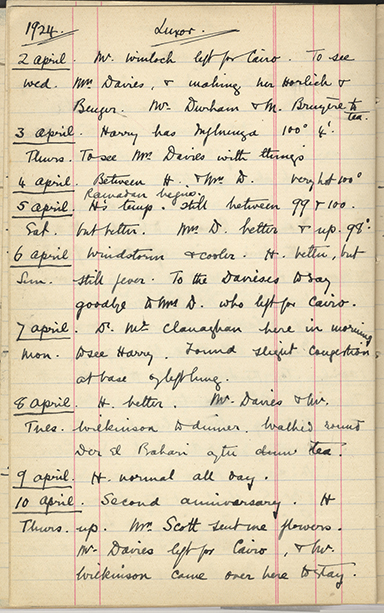 1924. Luxor.
2 april. Mr. Winlock left for Cairo. To see
Wed. Mrs Davies, & making her Horlick &
Benger. Mr. Durham & M. Bruyere to
tea.
3 april. Harry has Influenza 100° 4'.
Thurs. To see Mrs. Davies with things
4 april. Between H. & Mrs D. very hot 100°
Ramadan begins.
5 april. H's temp. still between 99 & 100.
Sat. but better. Mrs D. better & up. 98°.
6 april. Windstorm & cooler. H. better, but
Sun. still fever. To the Davises to say
goodbye to Mrs D. who left for Cairo.
7 april. Dr. McClanaghan here in morning
Mon. to see Harry. Found slight congestion
at base of left lung.
8 april. H. better. Mr. Davies & Mr.
Tues. Wilkinson to dinner. Walked round
Der El Bahari after tea.
9 april. H. normal all day.
10 april. Second anniversary. H
Thurs. up. Mrs. Scott sent me flowers.
Mr. Davies left for Cairo, & Mr.
Wilkinson came over here to stay.